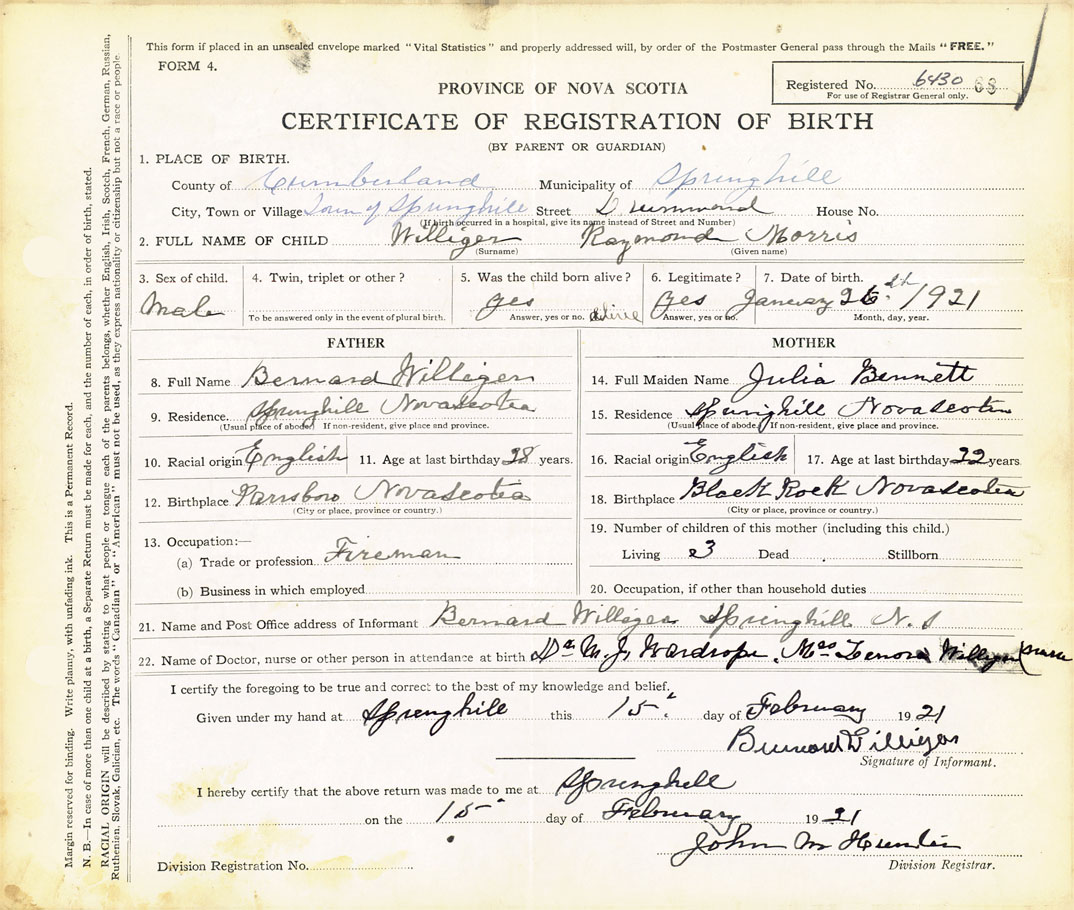 This form if placed in an unsealed envelope marked "Vital Statistics" and properly addressed will, by order of the Postmaster General pass through the Mails "FREE."
FORM 4.
Registered No. 6430 68
For use of Registrar General only.
PROVINCE OF NOVA SCOTIA
CERTIFICATE OF REGISTRATION OF BIRTH
(BY PARENT OR GUARDIAN)
1. PLACE OF BIRTH.
County of Cumberland Municipality of Springhill
City, Town or Village Town of Springhille Street Drummond House No.
(If birth occurred in a hospital, give its name instead of Street and Number)
2. FULL NAME OF CHILD Willigen Raymond Morris
(Surname) (Given name)
3. Sex of child. 4. Twin, triplet or other? 5. Was the child born alive? 6. Legitimate? 7. Date of birth.
Male yes alive yes January 26th 1921
To be answered only in the event of plural birth. Answer, yes or no. Answer, yes or no. Month, day, year.
FATHER MOTHER
8. Full Name Bernard Willigen 14. Full Maiden Name Julia Bennett
9. Residence. Springhill Novascotea 15. Residence Springhill Novascotea
(Usual place of abode.) If non-resident, give place and province. (Usual place of abode.) If non-resident, give place and province.
10. Racial origin English 11. Age at last birthday 28 years. 16. Racial origin English 17. Age at last birthday 22 years.
12. Birthplace Parrsboro Novascotea 18. Birthplace Black Rock Novascotea
(City or place, province or country.) (City or place, province or country.)
13. Occupation:— 19. Number of children of this mother (including this child.)
(a) Trade or profession Fireman Living 3 Dead Stillborn
(b) Business in which employed 20. Occupation, if other than household duties
21. Name and Post Office address of Informant Bernard Willigen Springhill N. S
22. Name of Doctor, nurse or other person in attendance at birth Dr M. J. Wardrope. Mrs Lenora Willigen (nurse
I certify the foregoing to be true and correct to the best of my knowledge and belief.
Given under my hand at Springhill this 15" day of February 1921
Bernard Willigen
Signature of Informant.
I hereby certify that the above return was made to me at Springhill
on the 15" day of February 1921
John M Hunter
Division Registration No. Division Registrar.
Margin reserved for binding. Write plainly, with unfading ink. This is a Permanent Record.
N. B.—In case of more than one child at a birth, a Separate Return must be made for each, and the number of each, in order of birth, stated.
RACIAL ORIGIN will be described by stating to what people or tongue each of the parents belongs, whether English, Irish, Scotch, French, German, Russian,
Ruthenian, Slovak, Galician, etc. The words "Canadian" or "American" must not be used, as they express nationality or citizenship but not a race or people.